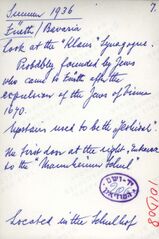 Summer 1936
7.
Fürth / Bavaria
Look at the "Klaus" Synagogue.
Probably founded by Jews
who came to Fürth after the
expulsion of the Jews of Vienna
1670.
Upstairs used to be the "Yeshivah"
The first door at the right, Entrance
to the "Mannheimer Schul"
יד ושם
Located in the Schulhof